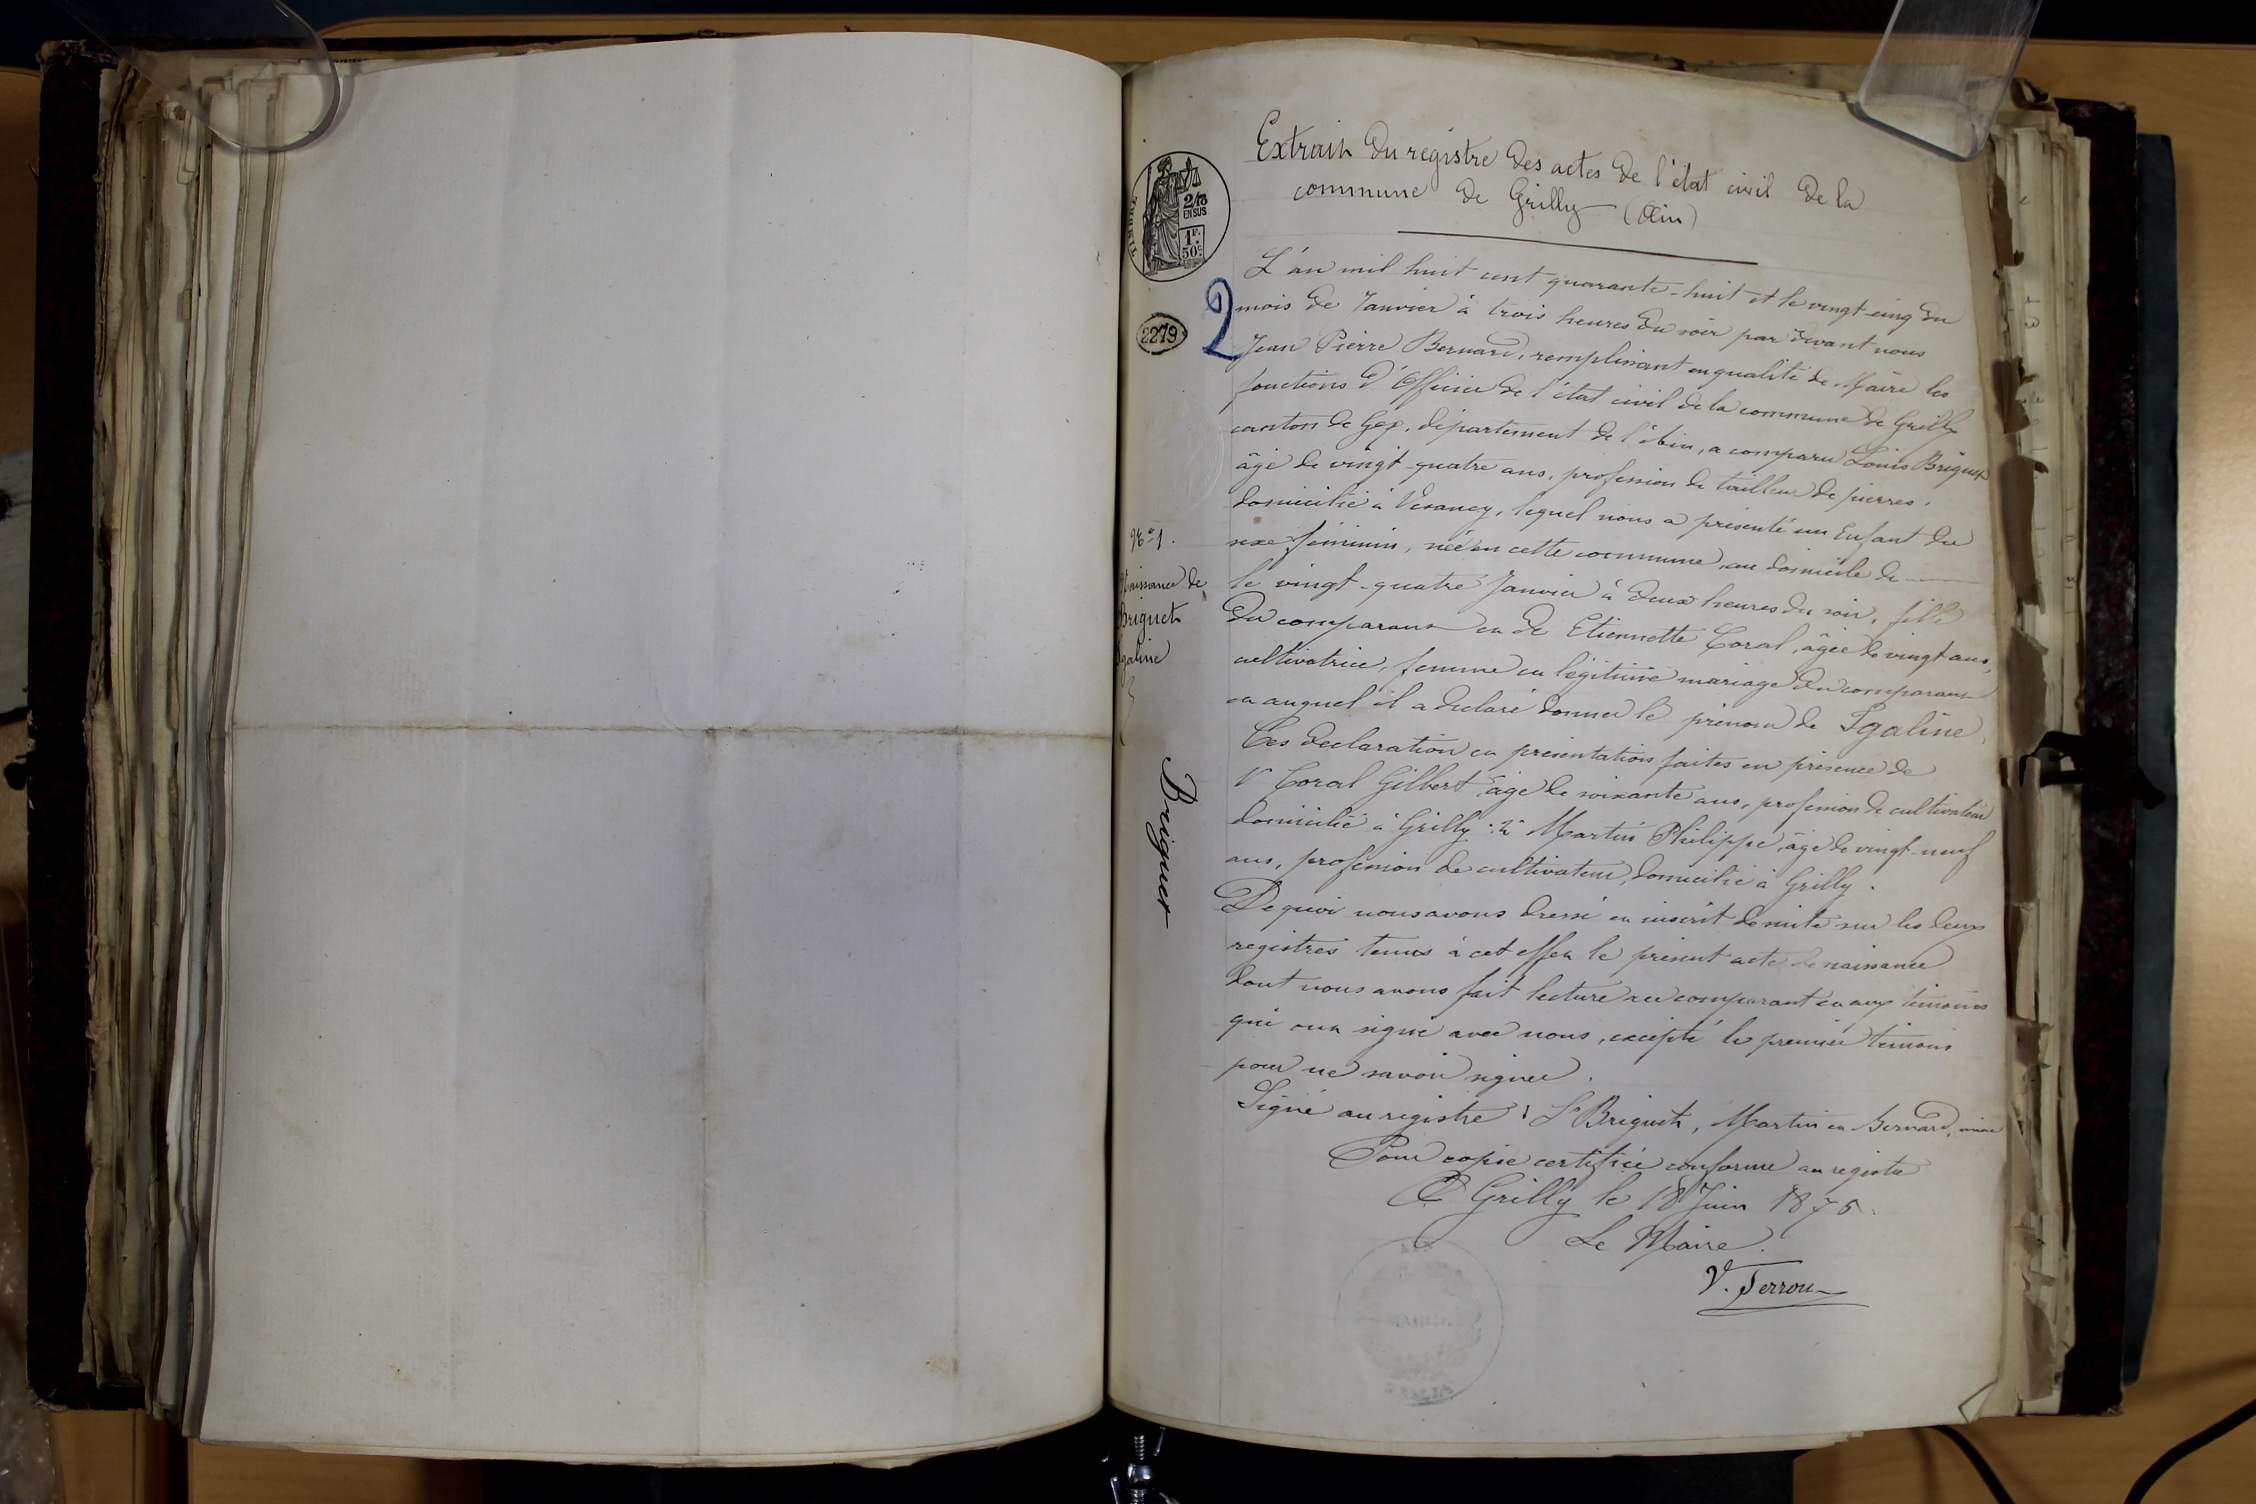 Extrait du registre des actes de l'état civil de la
commune de Grilly (Ain)
TIMBRE
2/10
EN SUS
1F.
50c
2279
2
L'an mil huit cent quarante-huit et le vingt-cinq du
mois de Janvier à trois heures du soir par devant nous
Jean Pierre Bernard, remplissant en qualité de Maire les
fonctions d'Officier de l'état civil de la commune de Grilly
canton de Gex, département de l'Ain, a comparu Louis Briguet
âgé de vingt-quatre ans, profession de tailleur de pierres,
domicilié à Vesancy, lequel nous a présenté un Enfant du
sexe féminin, née en cette commune, au domicile de
le vingt-quatre Janvier à deux heures du soir, fille
du comparant et de Etiennette Coral, âgée de vingt ans,
cultivatrice, femme en légitime mariage du comparant
et auquel il a déclaré donner le prénom de Igaline.
Ces déclaration et présentation faites en présence de
1° Coral Gilbert, âgé de soixante ans, profession de cultivateur
domicilié à Grilly; 2° Martin Philippe, âgé de vingt-neuf
ans, profession de cultivateur, domicilié à Grilly.
De quoi nous avons dressé et inscrit de suite sur les deux
registres tenus à cet effet le présent acte de naissance
dont nous avons fait lecture au comparant et aux témoins
qui ont signé avec nous, excepté le premier témoin
pour ne savoir signer.
Signé au registre: Ls Briguet, Martin et Bernard, maire
Pour copie certifiée conforme au registre
A Grilly le 18 Juin 1875.
Le Maire.
V. Perrou
No 1.
Naissance de
Briguet
Igaline
Briguet